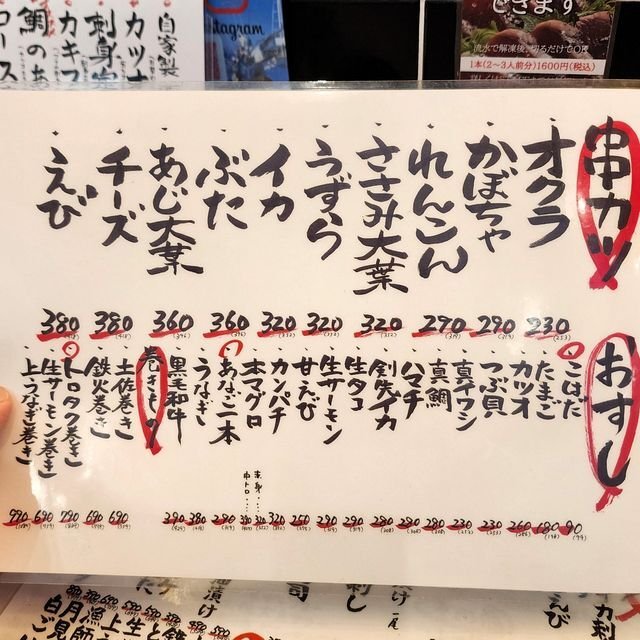 串カツ
オクラ 230 (253)
かぼちゃ 290 (319)
れんこん 290 (319)
ささみ大葉 320 (352)
うずら 320 (352)
イカ 320 (352)
ぶた 360 (396)
あじ大葉 360 (396)
チーズ 380 (418)
えび 380 (418)
おすし
こはだ 90 (99)
たまご 180 (198)
カツオ 260 (286)
つぶ貝 230 (253)
真イワシ 230 (253)
真鯛 280 (308)
ハマチ 280 (308)
剣先イカ 280 (308)
生タコ 290 (319)
生サーモン 290 (319)
甘えび 250
カンパチ 320 (352)
本マグロ
赤身
中トロ
あなご一本 290 (319)
うなぎ 380
黒毛和牛 390 (429)
巻きもの
土佐巻き 690
鉄火巻き 690
トロタク巻き 790
生サーモン巻き 690
上うなぎ巻き 990
できます
流水で解凍後、切るだけでOK
1本(2～3人前分)1600円(税込)
Instagram
自家製
カツオ
刺身
カキフ
鯛のあ
コース